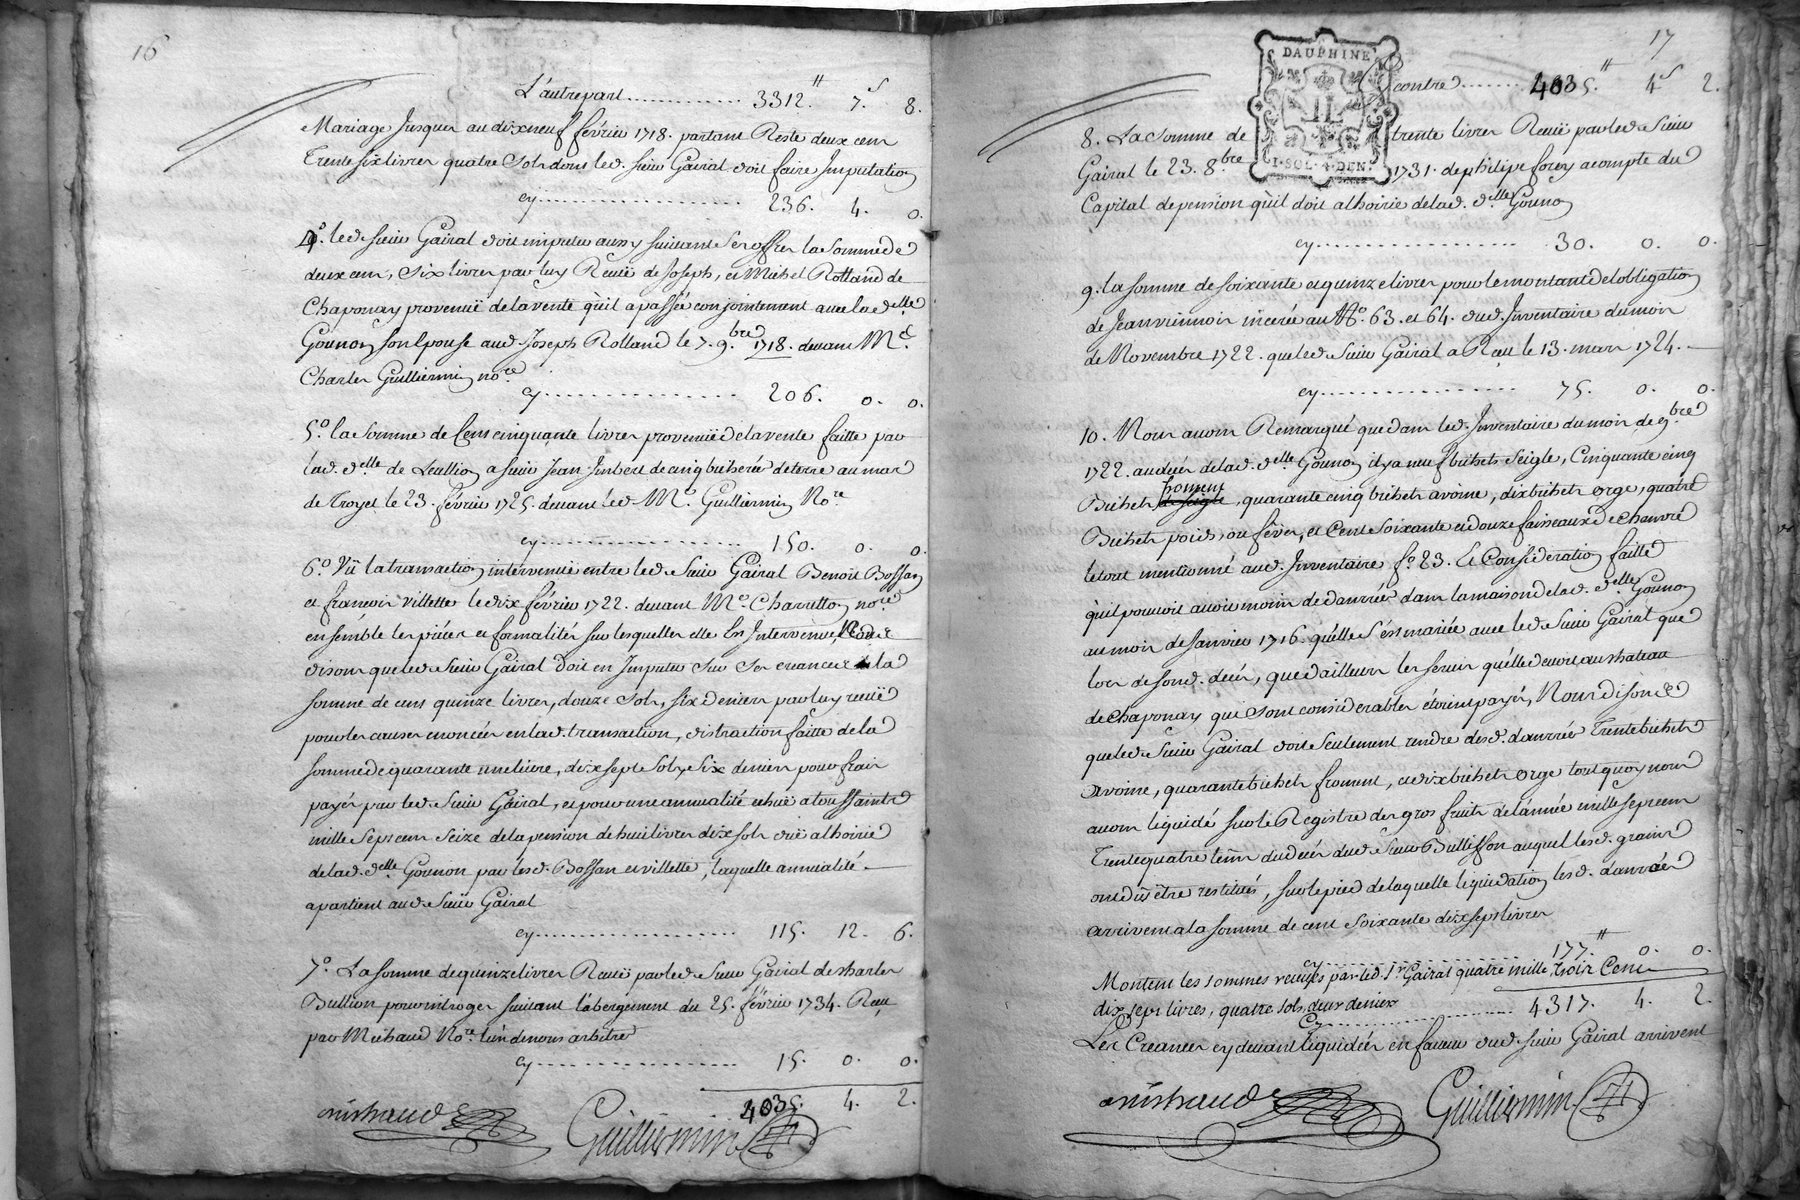 16
L'autrepart ............ 3312.tt 7.s 8.
Mariage Jusques au dixneuf février 1718. partant Reste deux cens
Trente six livres quatre Sols dont led. sieur Gairal doit faire Imputation
cy .................... 236. 4. 0.
4o. led. sieur Gairal doit imputer aussy suivant Ses offres la Somme de
deux cens, Six livres par luy Receüe de Joseph, et Michel Rolland de
Chaponay provenüe de la vente qu'il a passée conjointement avec lad. delle
Gounon son Epouse aud. Joseph Rolland le 7. 9.bre 1718. devant Me.
Charles Guilliermin nore.
cy .................... 206. 0. 0.
5.o la Somme de Cent cinquante livres provenüe de la vente faitte par
lad. delle de Leullion a sieur Jean Jmbert de cinq bicherées de terre au mas
de Troyet le 23. février 1725. devant led. Me. Guilliermin Nore
cy .................... 150. 0. 0.
6.o Vü la transaction intervenüe entre led. Sieur Gairal Benoît Bossan
et francois Villette le dix février 1722. devant Me. Charretton nore
ensemble les pièces et formalités sur lesquelles elle Est Intervenüe, Nous
disons que led. Sieur Gairal Doit en Imputer Sur Ses creances la
somme de cens quinze livres, douze Sols, six deniers par luy receüe
pour les causes enoncées en lad. transaction, distraction faitte de la
somme de quarante une livre, dix sept Sols, Six deniers pour frais
payés par led. Sieur Gairal, et pour une annualité echüe a toussaints
mille Sept cens Seize de la pension de huit livres dix sols düe a l'hoirie
de lad. delle Gounon par lesd. Bossan et villette, laquelle annualité
apartient aud. Sieur Gairal
cy .................... 115. 12. 6.
7.o La somme de quinze livres Receüe par led. Sieur Gairal de charles
Bullion pour mi troges suivant l'abergement du 25. février 1734. Reçu
par Michaud Nore. l'un de nous arbitre
cy .................... 15. 0. 0.
4035. 4. 2.
Michaud Guilliermin
17
DAUPHINE
1. SOL. 4. DEN.
contre ........ 4035.tt 4.s 2.
8. La Somme de trente livres Receüe par led. Sieur
Gairal le 23. 8.bre 1731. de philipe forey acompte du
Capital de pension qu'il doit a lhoirie de lad. delle Gounon
cy .................... 30. 0. 0.
9. la somme de soixante et quinze livres pour le montant de l'obligation
de Jean inserée au No. 63. et 64. dud. Inventaire du mois
de Novembre 1722. que led. Sieur Gairal a Reçu le 13. mars 1724.
cy .................... 75. 0. 0.
10. Nous avons Remarqué que dans led. Inventaire du mois de 9.bre
1722. au decés de lad. delle. Gounon il y a neuf bichets Seigle, Cinquante cinq
Bichets froment, quarante cinq bichets avoine, dix bichets orge, quatre
Bichets poids, ou féves, et Cent Soixante et douze faisceaux de Chanvre
le tout mentionné aud. Inventaire fo. 23. Et Consideration faitte
qu'il pouvoit avoir moins de danrées dans la maison de lad. delle Gounon
au mois de Janvier 1716. qu'elle S'est mariée avec led. Sieur Gairal que
lors de son d. decés, que d'ailleurs les servis qu'elle devoit au chateau
de chaponay qui sont considerables étoient payés, Nous disons
que led. Sieur Gairal doit Seulement rendre desd. danrées Trente bichets
avoine, quarante bichets froment, et dix bichets orge tout quoy nous
avons liquidé sur le Registre des gros fruits de l'année mille sept cens
Trente quatre tems du decés dud. Sieur Bullisson auquel lesd. grains
ont dû être restitués, sur le pied de laquelle liquidation lesd. danrées
arrivent a la somme de cent soixante dix sept livres
cy .................... 177.tt 0. 0.
Montent les sommes receües par led. Sr. Gairal quatre mille, trois Cent
dix sept livres, quatre sols, deux deniers
Cy .................... 4317. 4. 2.
Les Creances cy devant liquidées en faveur dud. sieur Gairal arrivent
Michaud Guilliermin